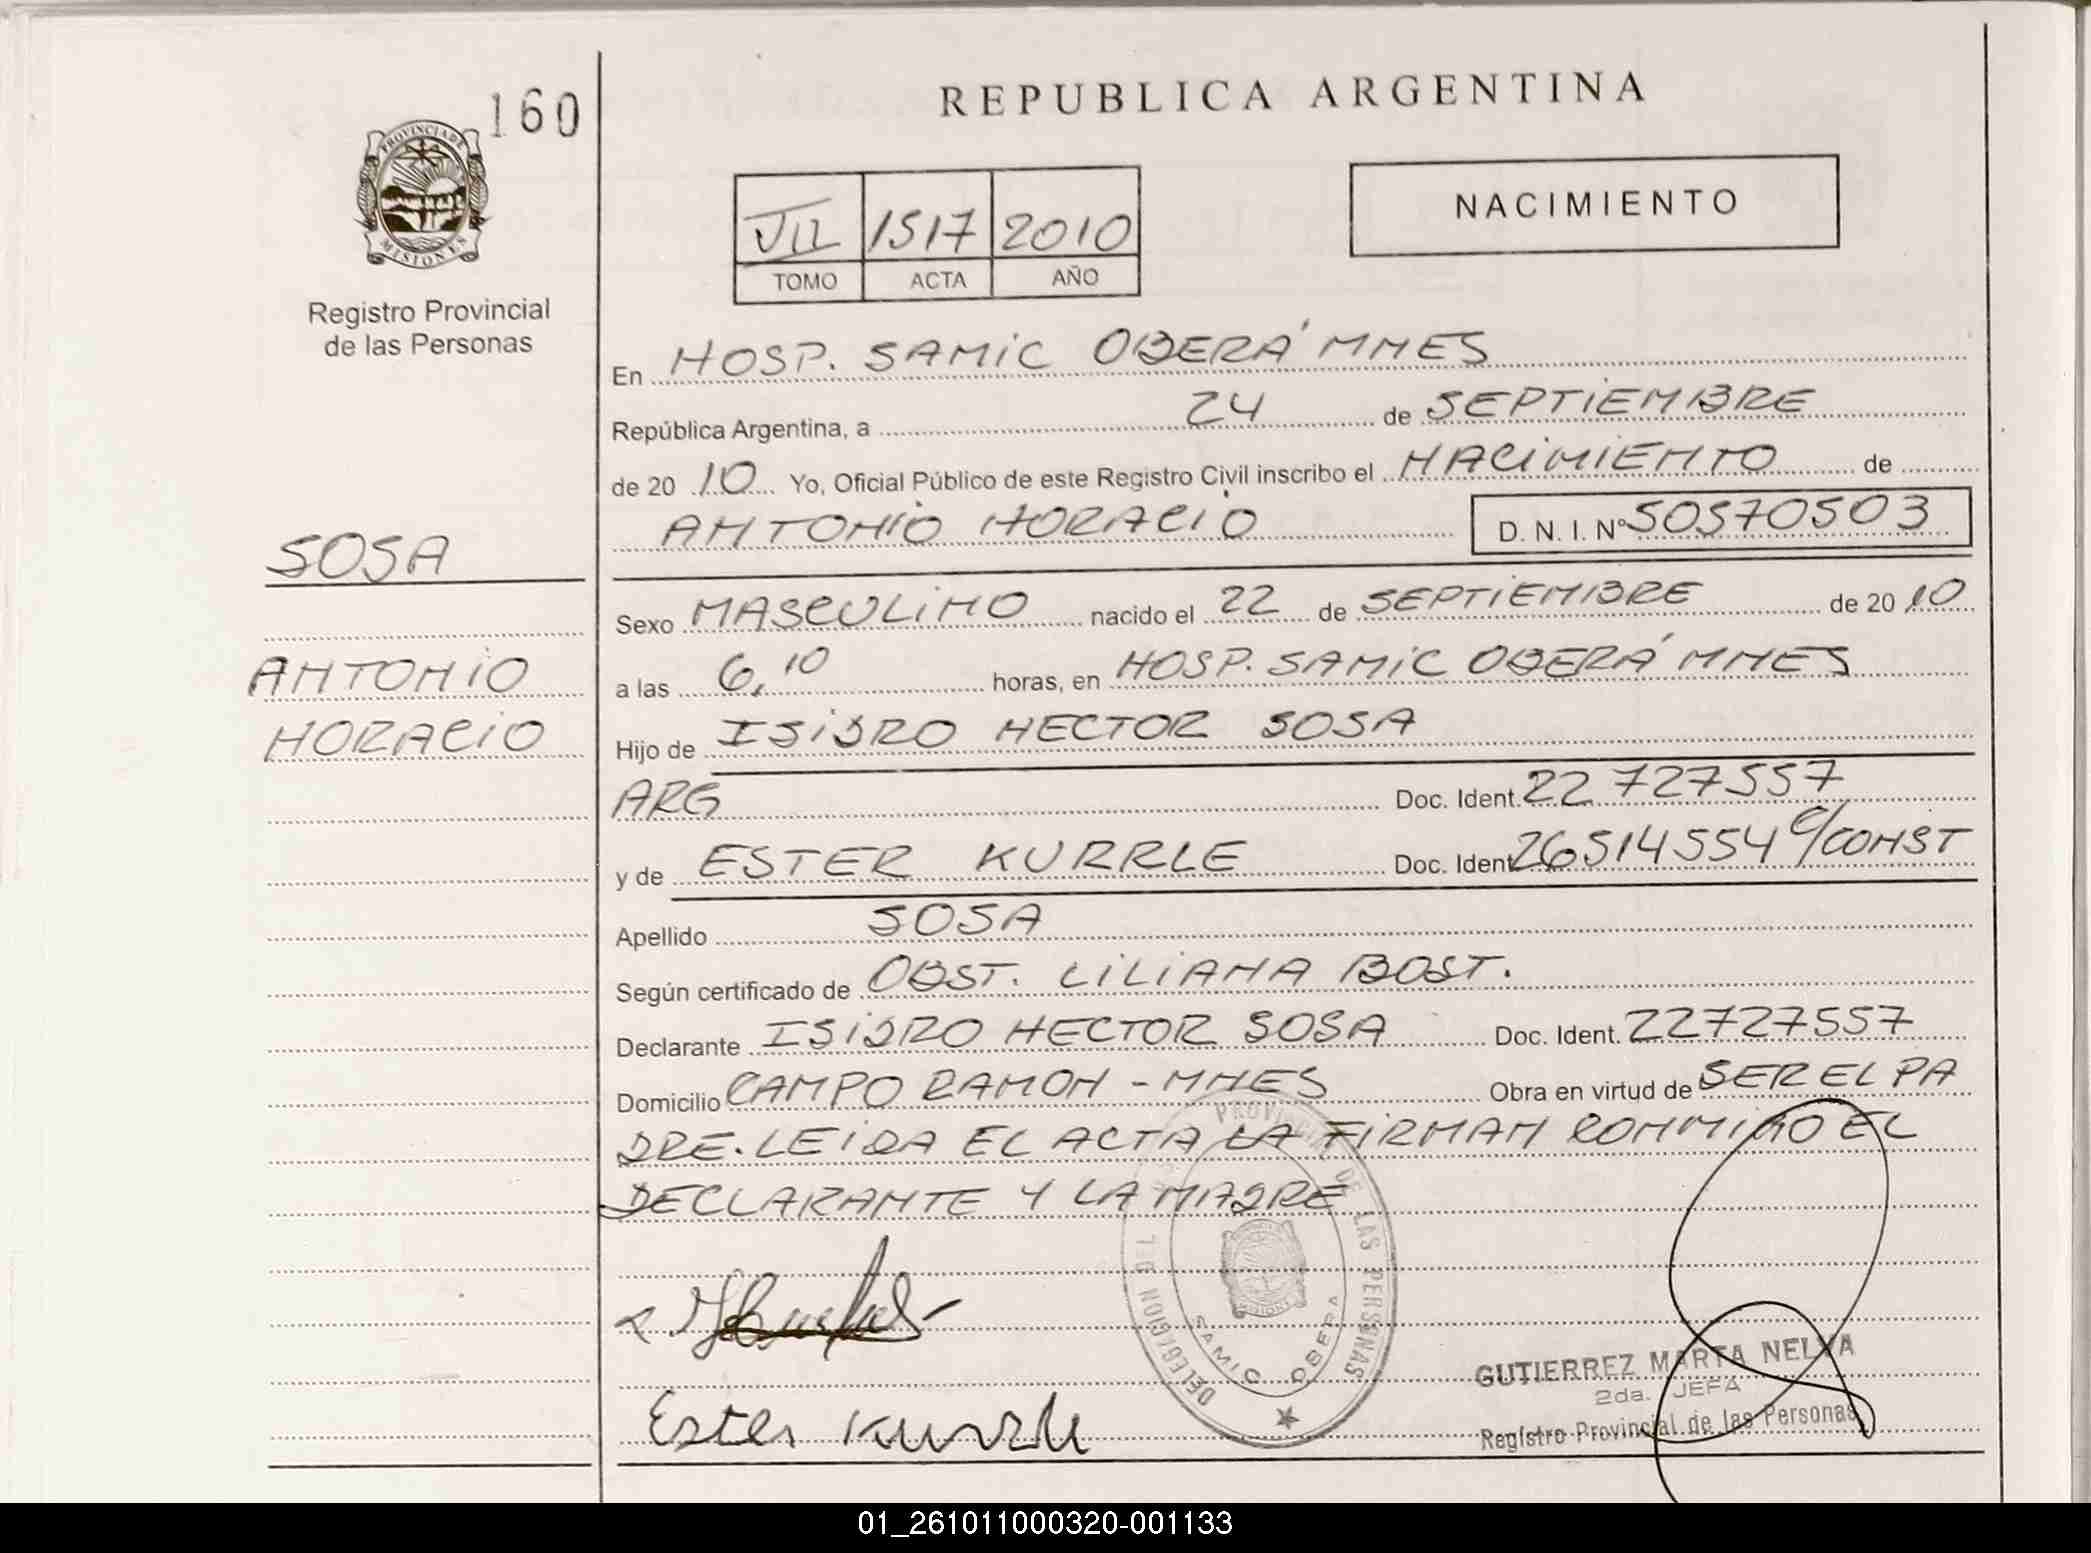 160
PROVINCIA DE
MISIONES
Registro Provincial
de las Personas
SOSA
ANTONIO
HORACIO
REPUBLICA ARGENTINA
VII 1517 2010
TOMO ACTA AÑO
NACIMIENTO
En HOSP. SAMIC OBERÁ MNES
República Argentina, a 24 de SEPTIEMBRE
de 20 10 Yo, Oficial Público de este Registro Civil inscribo el NACIMIENTO de
ANTONIO HORACIO D. N. I. Nº 50570503
Sexo MASCULINO nacido el 22 de SEPTIEMBRE de 20 10
a las 6,10 horas, en HOSP. SAMIC OBERÁ MNES
Hijo de ISIDRO HECTOR SOSA
ARG Doc. Ident. 22 727557
y de ESTER KURRLE Doc. Ident 26514554 c/CONST
Apellido SOSA
Según certificado de OBST. LILIANA BOST.
Declarante ISIDRO HECTOR SOSA Doc. Ident. 22727557
Domicilio CAMPO RAMON - MNES Obra en virtud de SER EL PA
DRE. LEIDA EL ACTA LA FIRMAN CONMIGO EL
DECLARANTE Y LA MADRE
DELEGACION DEL PROVINCIAL DE LAS PERSONAS
SAMIC OBERA
Ester Kurrle
GUTIERREZ MARTA NELVA
2da. JEFA
Registro Provincial de las Personas
01_261011000320-001133